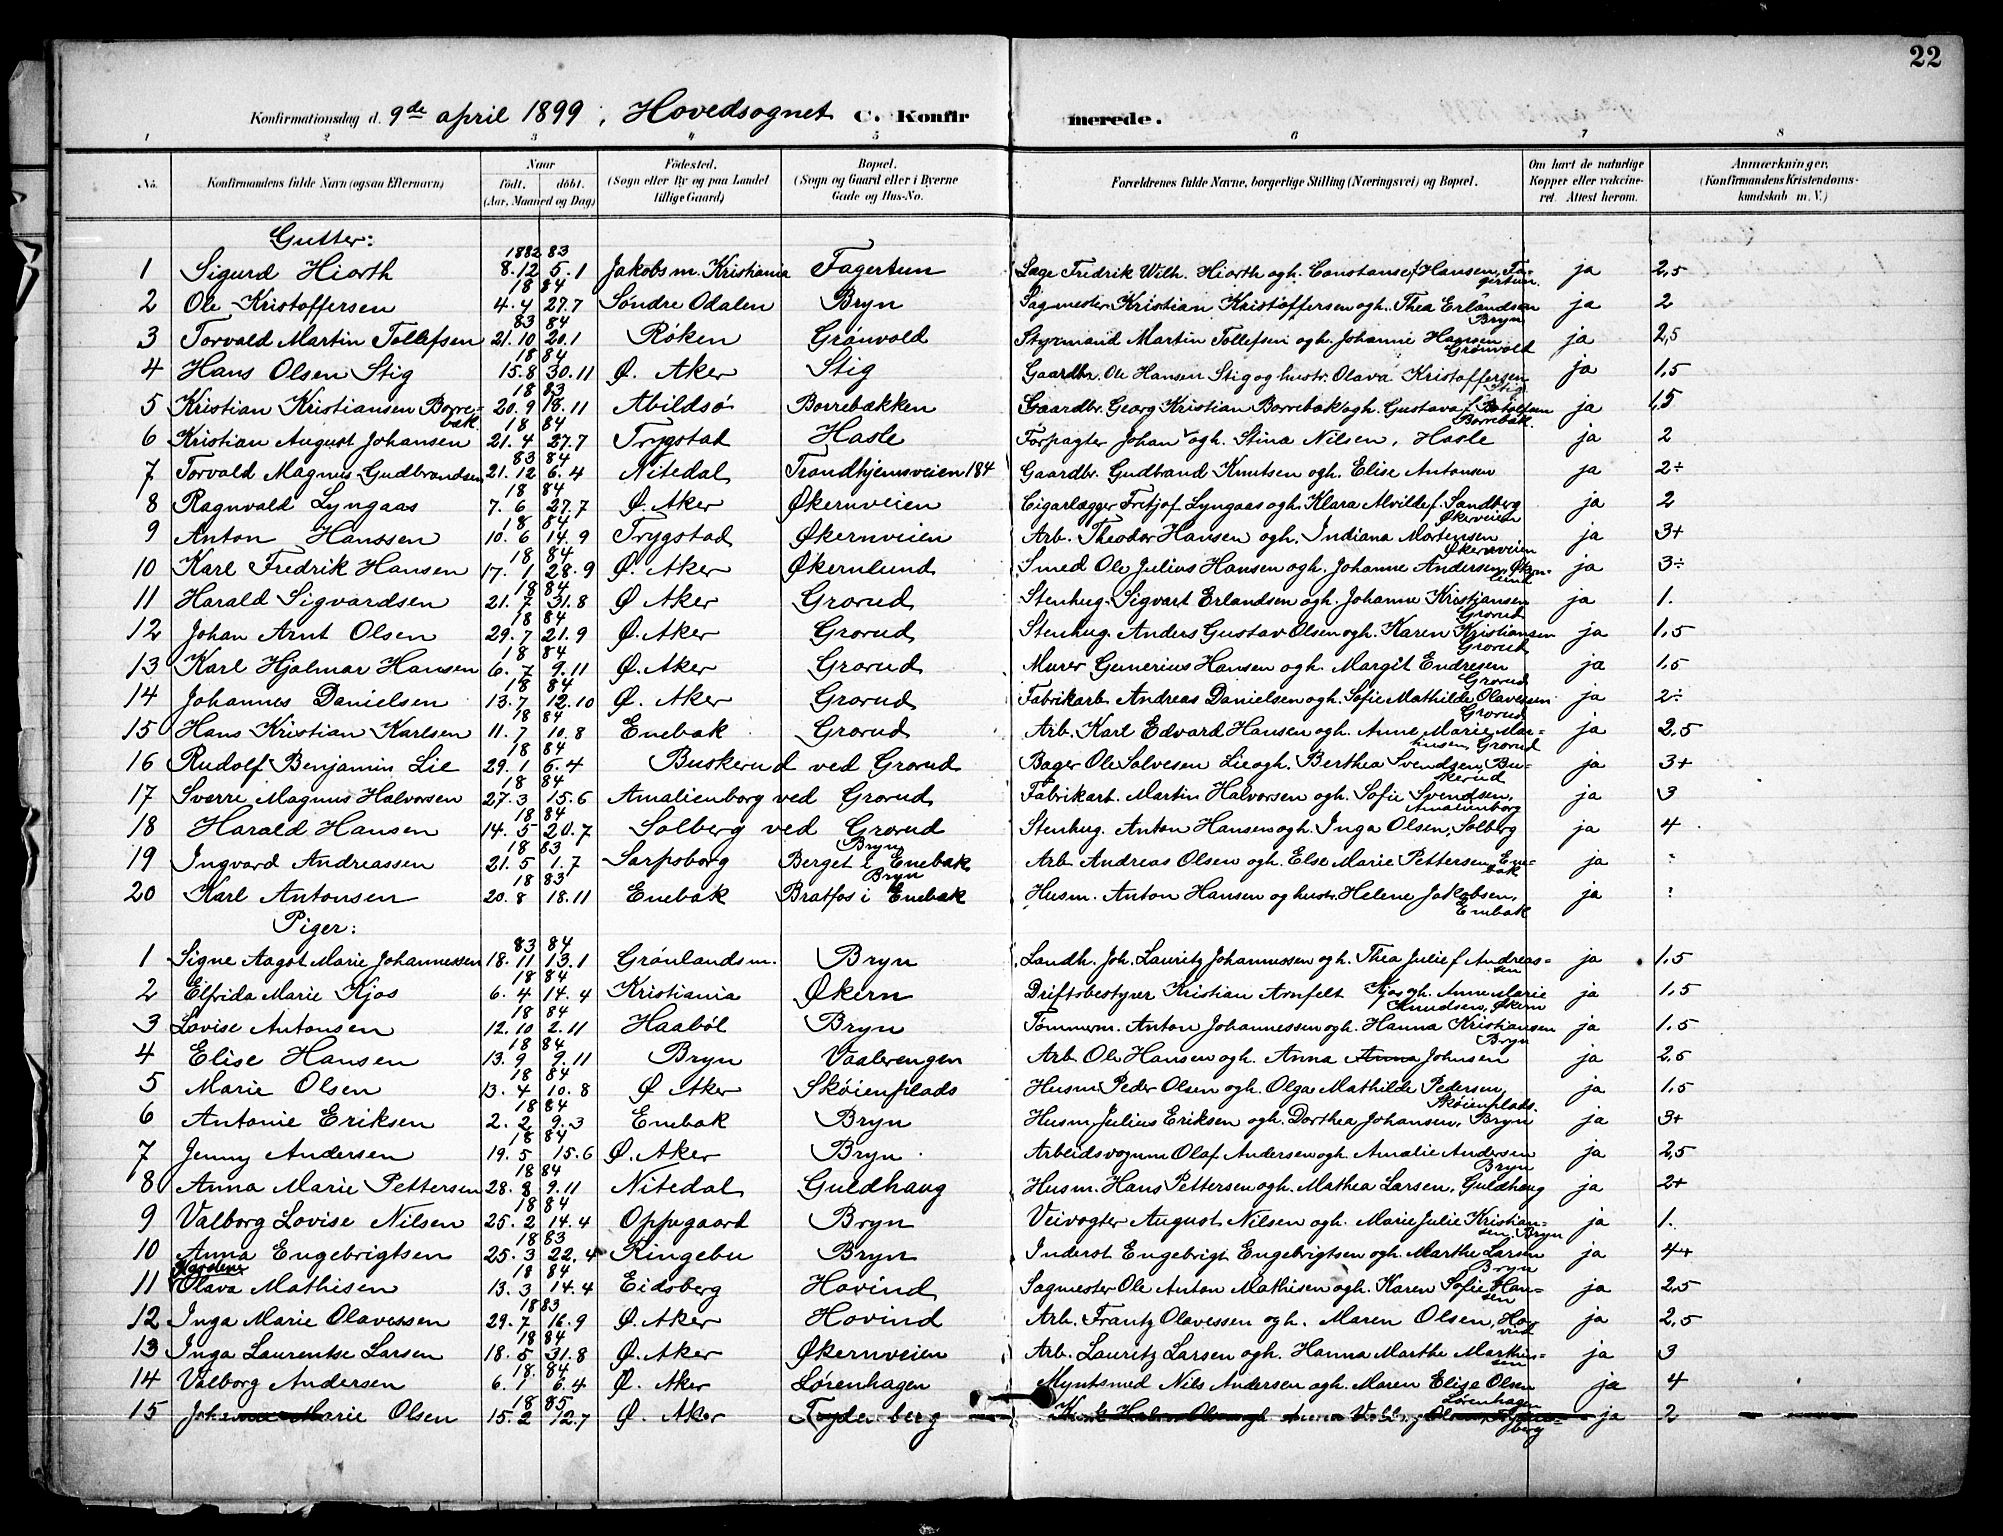 22
Konfirmationsdag d. 9de april 1899, Hovedsognet C. Konfirmerede.
1 2 3 4 5 6 7 8
No. Konfirmandens fulde Navn (ogsaa Efternavn) Naar født, døbt. (Aar, Maaned og Dag) Fødested. (Sogn eller By og paa Landet tillige Gaard) Bopæl. (Sogn og Gaard eller i Byerne Gade og Hus-No. Forældrenes fulde Navne, borgerlige Stilling (Næringsvei) og Bopæl. Om havt de naturlige Kopper eller vakcineret. Attest herom. Anmærkninger. (Konfirmandens Kristendomskundskab m. V.)
Gutter:
1 Sigurd Hiorth 1882 8.12 83 5.1 Jakobs m. Kristiania Fagertun Læge Fredrik Wilh. Hiorth og h. Constanse f Hansen, Fagertun. ja 2,5
2 Ole Kristoffersen 18 84 4.4 27.7 Søndre Odalen Bryn Sagmester Kristian Kristoffersen og h. Thea Erlandsen Bryn ja 2
3 Torvald Martin Tollefsen 83 84 21.10 20.1 Røken Grønvold Styrmand Martin Tollefsen og h. Johanne Hansen Grønvold ja 2,5
4 Hans Olsen Stig 18 84 15.8 30.11 Ø. Aker Stig Gaardbr. Ole Hansen Stig og hustr. Olava Kristoffersen Stig ja 1,5
5 Kristian Kristiansen Borrebak. 18 83 20.9 18.11 Abildsø Borrebækken Gaardbr. Georg Kristian Borrebak og h. Gustava f. Borrebak. ja 1,5
6 Kristian August Johansen 18 84 21.4 27.7 Trygstad Hasle Forpagter Johan og h. Stina Nilsen, Hasle ja 2
7 Torvald Magnus Gudbrandsen 83 84 21.12 6.4 Nitedal Trondhjemsveien 184 Gaardbr. Gudbrand Knutsen og h. Elise Antonsen ja 2÷
8 Ragnvald Lyngaas 18 84 7.6 27.7 Ø. Aker Økernveien Cigarlægger Fritjof Lyngaas og h. Klara Alvilde f. Sandberg Økerveien ja 2
9 Anton Hanssen 18 84 10.6 14.9 Trygstad Økernveien Arb. Theodor Hansen og h. Indiana Mortensen Økernveien ja 3+
10 Karl Fredrik Hansen 18 84 17.1 28.9 Ø. Aker Økernlund Smed Ole Julius Hansen og h. Johanne Andersen, Økernlund ja 3÷
11 Harald Sigvardsen 18 84 21.7 31.8 Ø Aker Grorud Stenhug. Sigvart Erlandsen og h. Johanne Kristiansen Grorud ja 1.
12 Johan Arnt Olsen 18 84 29.7 21.9 Ø. Aker Grorud Stenhug. Anders Gustav Olsen og h. Karen Kristiansen Grorud ja 1,5
13 Karl Hjalmar Hansen 18 84 6.7 9.11 Ø. Aker Grorud Murer Gunerius Hansen og h. Margit Endresen Grorud ja 1,5
14 Johannes Danielsen 18 84 13.7 12.10 Ø. Aker Grorud Fabrikarb. Andreas Danielsen og h. Sofie Mathilde Olavessen Grorud ja 2÷
15 Hans Kristian Karlsen 18 84 11.7 10.8 Enebak Grorud Arb. Karl Edvard Hansen og h. Anne Marie Mathisen, Grorud ja 2,5
16 Rudolf Benjamin Lie 18 84 29.1 6.4 Buskerud ved Grorud Bager Ole Salvesen Lie og h. Berthea Svendsen, Buskerud ja 3+
17 Sverre Magnus Halvorsen 18 84 27.3 15.6 Amalienborg ved Grorud Fabrikarb. Martin Halvorsen og h. Sofie Svendsen, Amalienborg ja 3
18 Harald Hansen 18 84 14.5 20.7 Solberg ved Grorud Stenhug. Anton Hansen og h. Inga Olsen, Solberg ja 4
19 Ingvard Andreassen 18 83 21.5 1.7 Sarpsborg Bryn Berget i Enebak Arb Andreas Olsen og h. Else Marie Pettersen, Enebak ja :
20 Karl Antonsen 18 83 20.8 18.11 Enebak Bryn Bratfos i Enebak Husm. Anton Hansen og hustr. Helene Jakobsen, Enebak ja :
Piger:
1 Signe Aagot Marie Johannessen 83 84 18.11 13.1 Grønlands m. Bryn Landh. Joh. Lauritz Johannessen og h. Thea Julie f Andreassen ja 1,5
2 Elfrida Marie Kjos 18 84 6.4 14.4 Kristiania Økern Driftsbestyrer Kristian Arnfelt Kjos og h. Anne Marie Knudsen, Økern ja 1,5
3 Lovise Antonsen 18 84 12.10 2.11 Haabøl Bryn Tømmerm. Anton Johannessen og h. Hanna Kristiansen Bryn ja 1,5
4 Elise Hansen 18 84 13.9 9.11 Bryn Vaalerengen Arb Ole Hansen og h. Anna Anna Johnsen ja 2,5
5 Marie Olsen 18 84 13.4 10.8 Ø Aker Skøienplads Husm Peder Olsen og h. Olga Mathilde Pedersen, Skøienplads. ja 1,5
6 Antonie Eriksen 18 84 2.2 9.3 Enebak Bryn Husm Julius Eriksen og h. Dorthea Johansen, Bryn ja 3+
7 Jenny Andersen 18 84 19.5 15.6 Ø. Aker Bryn Arbeidsvognm Olaf Andersen og h. Amalie Andersen Bryn ja 2,5
8 Anna Marie Pettersen 18 84 28.8 9.11 Nitedal Guldhaug Husm. Hans Pettersen og h. Mathea Larsen, Guldhaug ja 2+
9 Valborg Lovise Nilsen 18 84 25.2 14.4 Oppegaard Bryn Veivogter August Nilsen og h. Marie Julie Kristiansen, Bryn ja 1.
10 Anna Engebrigtsen 18 83 25.3 22.4 Ringebu Bryn Inderst Engebrigt Engebrigtsen og h. Marthe Larsen Bryn ja 4+
11 Karoline Olava Mathisen 18 84 13.3 14.4 Eidsberg Hovind Sagmester Ole Anton Mathisen og h. Karen Sofie Hansen ja 2,5
12 Inga Marie Olavessen 1883 29.7 16.9 Ø. Aker Hovind Arb. Frantz Olavessen og h. Maren Olsen, Hovind ja 2,5
13 Inga Laurentse Larsen 18 84 18.5 31.8 Ø. Aker Økernveien Arb. Lauritz Larsen og h. Hanna Marthe Marthinsen ja 3
14 Valborg Andersen 18. 84 6.1 6.4 Ø. Aker Lørenhagen Myntsmed Nils Andersen og h. Maren Elise Olsen Lørenhagen ja 4
15 Johanne Marie Olsen 18 85 15.2 12.7 Ø. Aker berg ja 2